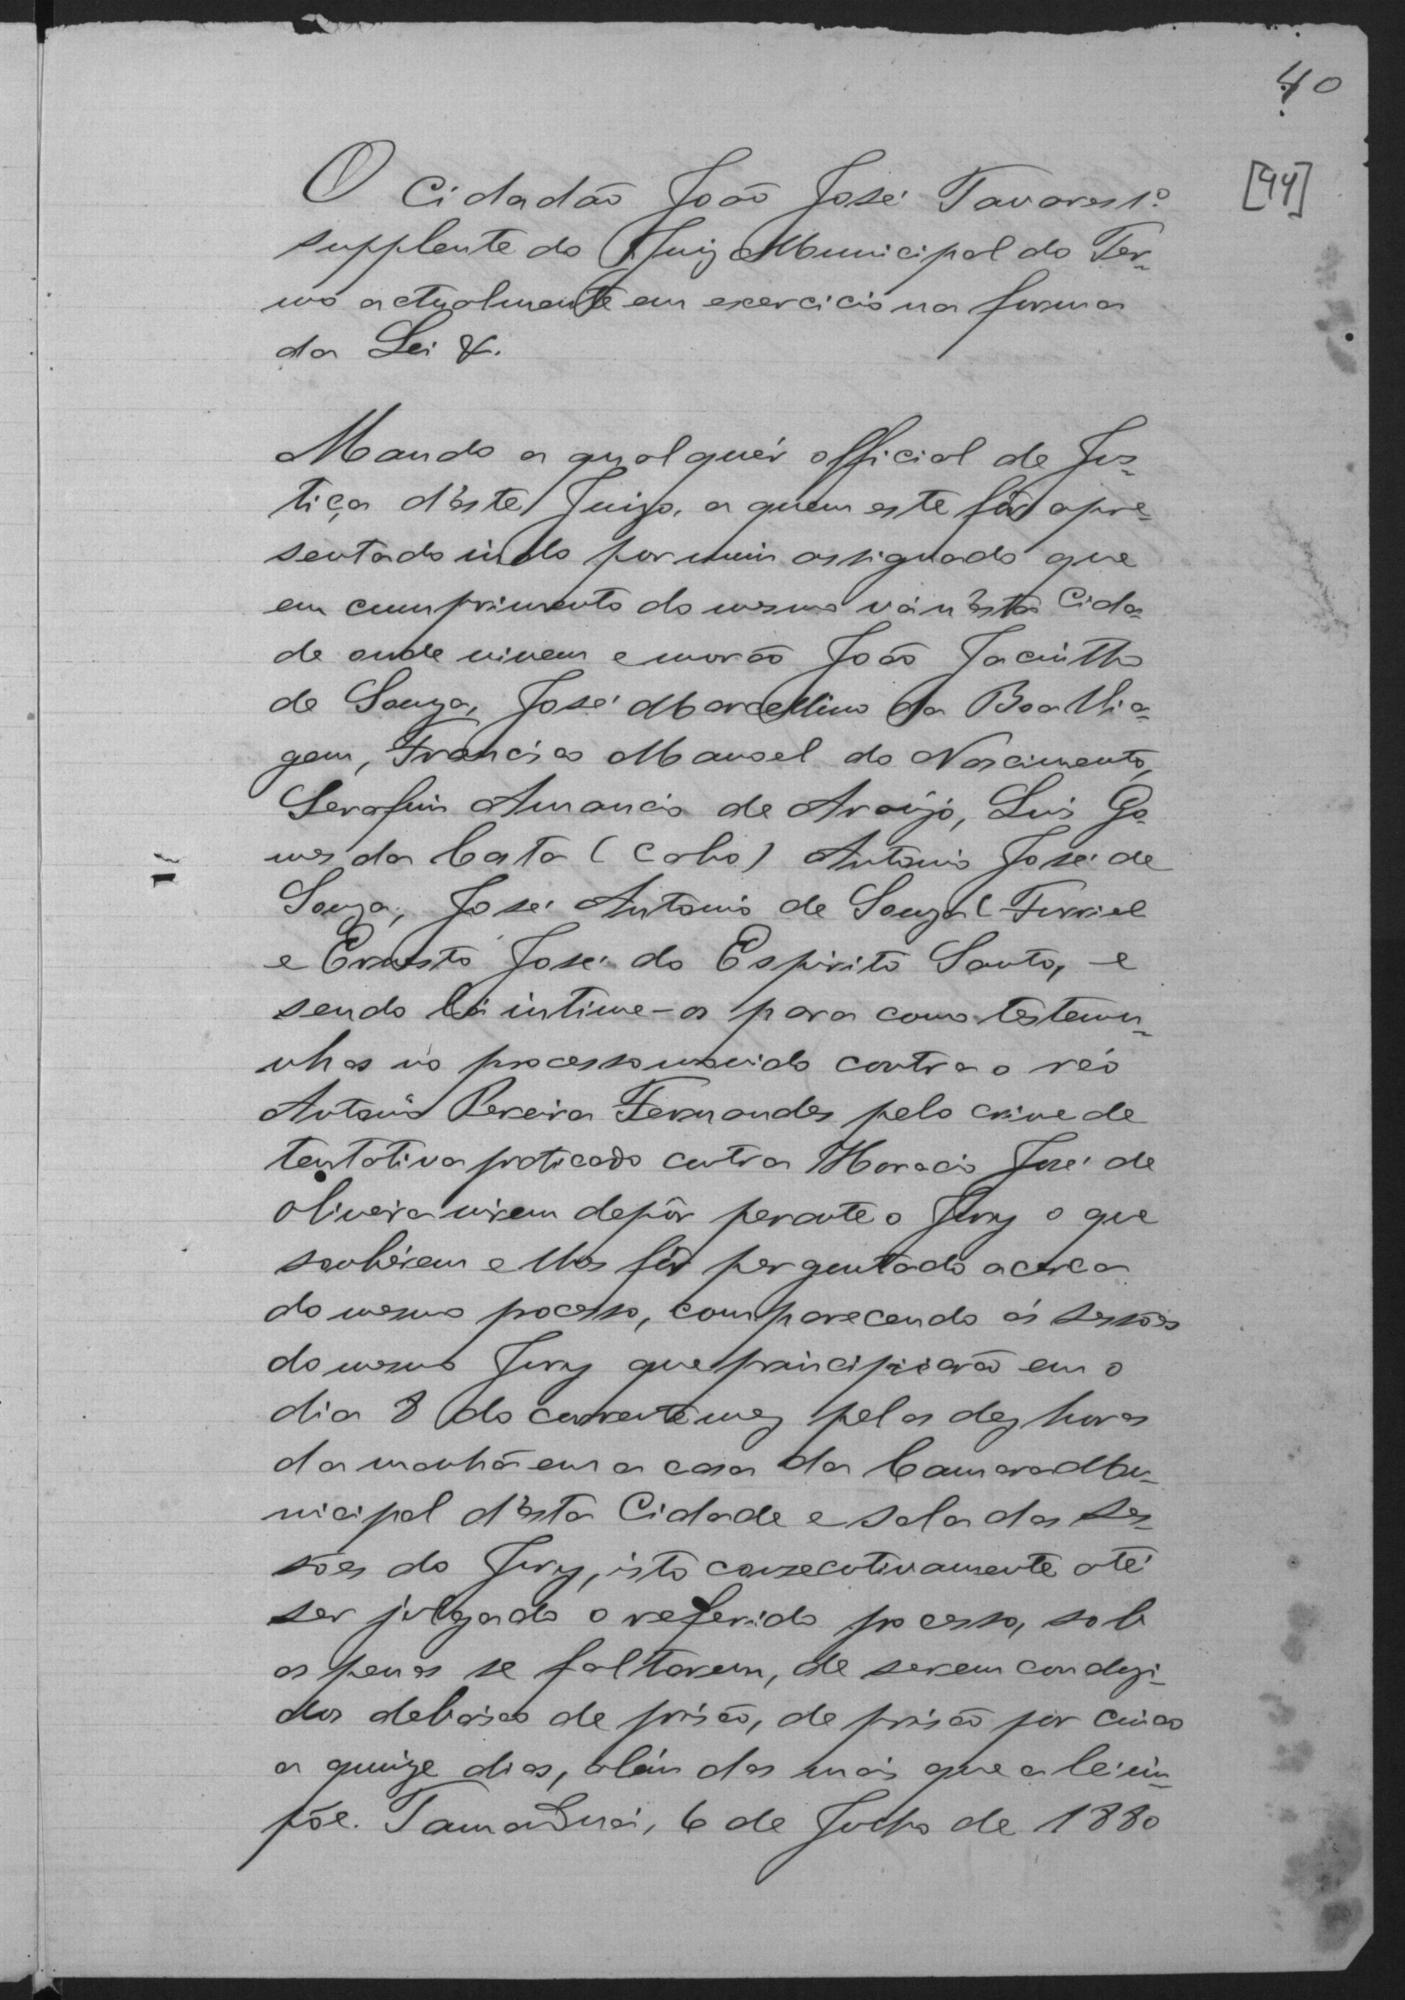 40
[44]
O Cidadão João José Tavares 1.º
supplente do Juiz Municipal do Ter-
mo actualmente em exercicio na forma
da Lei &.
Mando a qualquér official de Jus-
tiça d'este Juizo, a quem este fôr apre-
sentado indo por mim assignado que
em cumprimento do mesmo vá n'esta Cida-
de onde vivem e morão João Jacintho
de Souza, José Marcellino da Boa Via-
gem, Francisco Manoel do Nascimento,
Serafim Amancio de Araújo, Luis Go-
mes da Costa (Cabo) Antonio José de
Souza, José Antonio de Souza (Furriel
e Ernesto José do Espirito Santo, e
sendo lá intime-os para como testemu-
nhas no processo movido contra o réo
Antonio Pereira Fernandes pelo crime de
tentativa praticado contra Horacio José de
Oliveira virem depôr perante o Jury o que
soubérem e lhes fôr perguntado acerca
do mesmo processo, comparecendo ás sessões
do mesmo Jury que principiarão em o
dia 8 do corrente mez pelas dez horas
da manhã em a casa da Camara Mu-
nicipal d'esta Cidade e sala das ses-
sões do Jury, isto consecutivamente até
ser julgado o referido processo, sob
as penas se faltarem, de serem conduzi-
dos debaixo de prisão, de prisão por cinco
a quinze dias, alem das mais que a lei im-
põe. Tamanduá, 6 de Julho de 1880